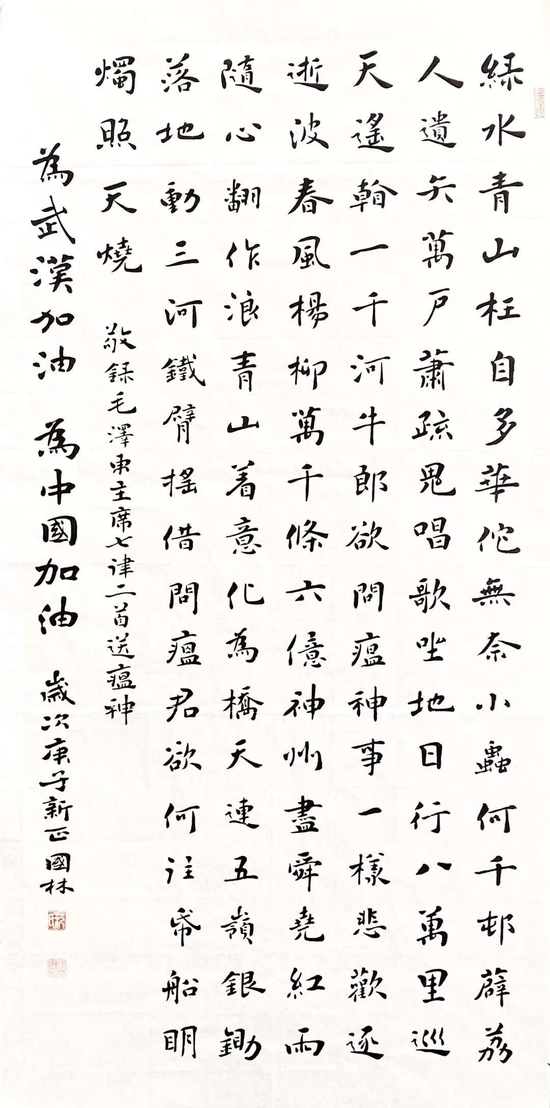 綠水青山枉自多華佗無奈小蟲何千邨薜荔
人遺矢萬戶蕭疏鬼唱歌坐地日行八萬里巡
天遙翰一千河牛郎欲問瘟神事一樣悲歡逐
逝波春風楊柳萬千條六億神州盡舜堯紅雨
隨心翻作浪青山着意化為橋天連五嶺銀鋤
落地動三河鐵臂搖借問瘟君欲何往帋船明
燭照天燒 敬録毛澤東主席七律二首送瘟神
為武漢加油 為中國加油 歲次庚子新正國林